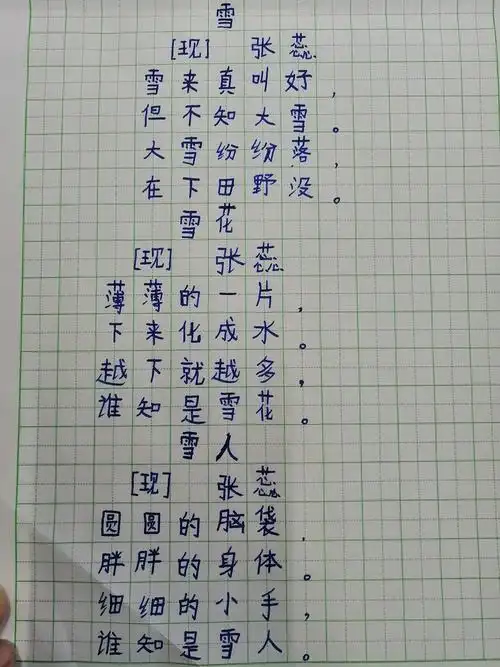 雪
[现] 张蕊
雪来真叫好，
但不知大雪。
大雪纷纷落，
在下田野没。
雪花
[现] 张蕊
薄薄的一片，
下来化成水。
越下就越多，
谁知是雪花。
雪人
[现] 张蕊
圆圆的脑袋，
胖胖的身体。
细细的小手，
谁知是雪人。